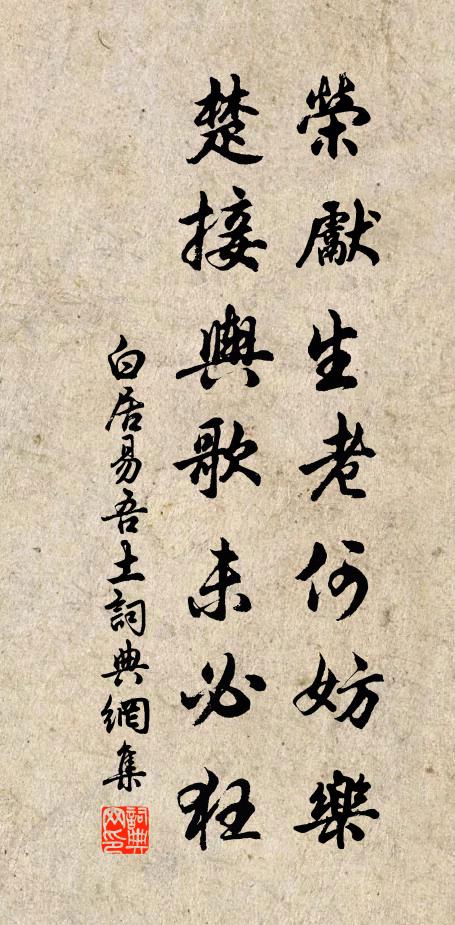 榮獻生老何妨樂
楚接輿歌未必狂
白居易吾土詞典網集
詞典
网印